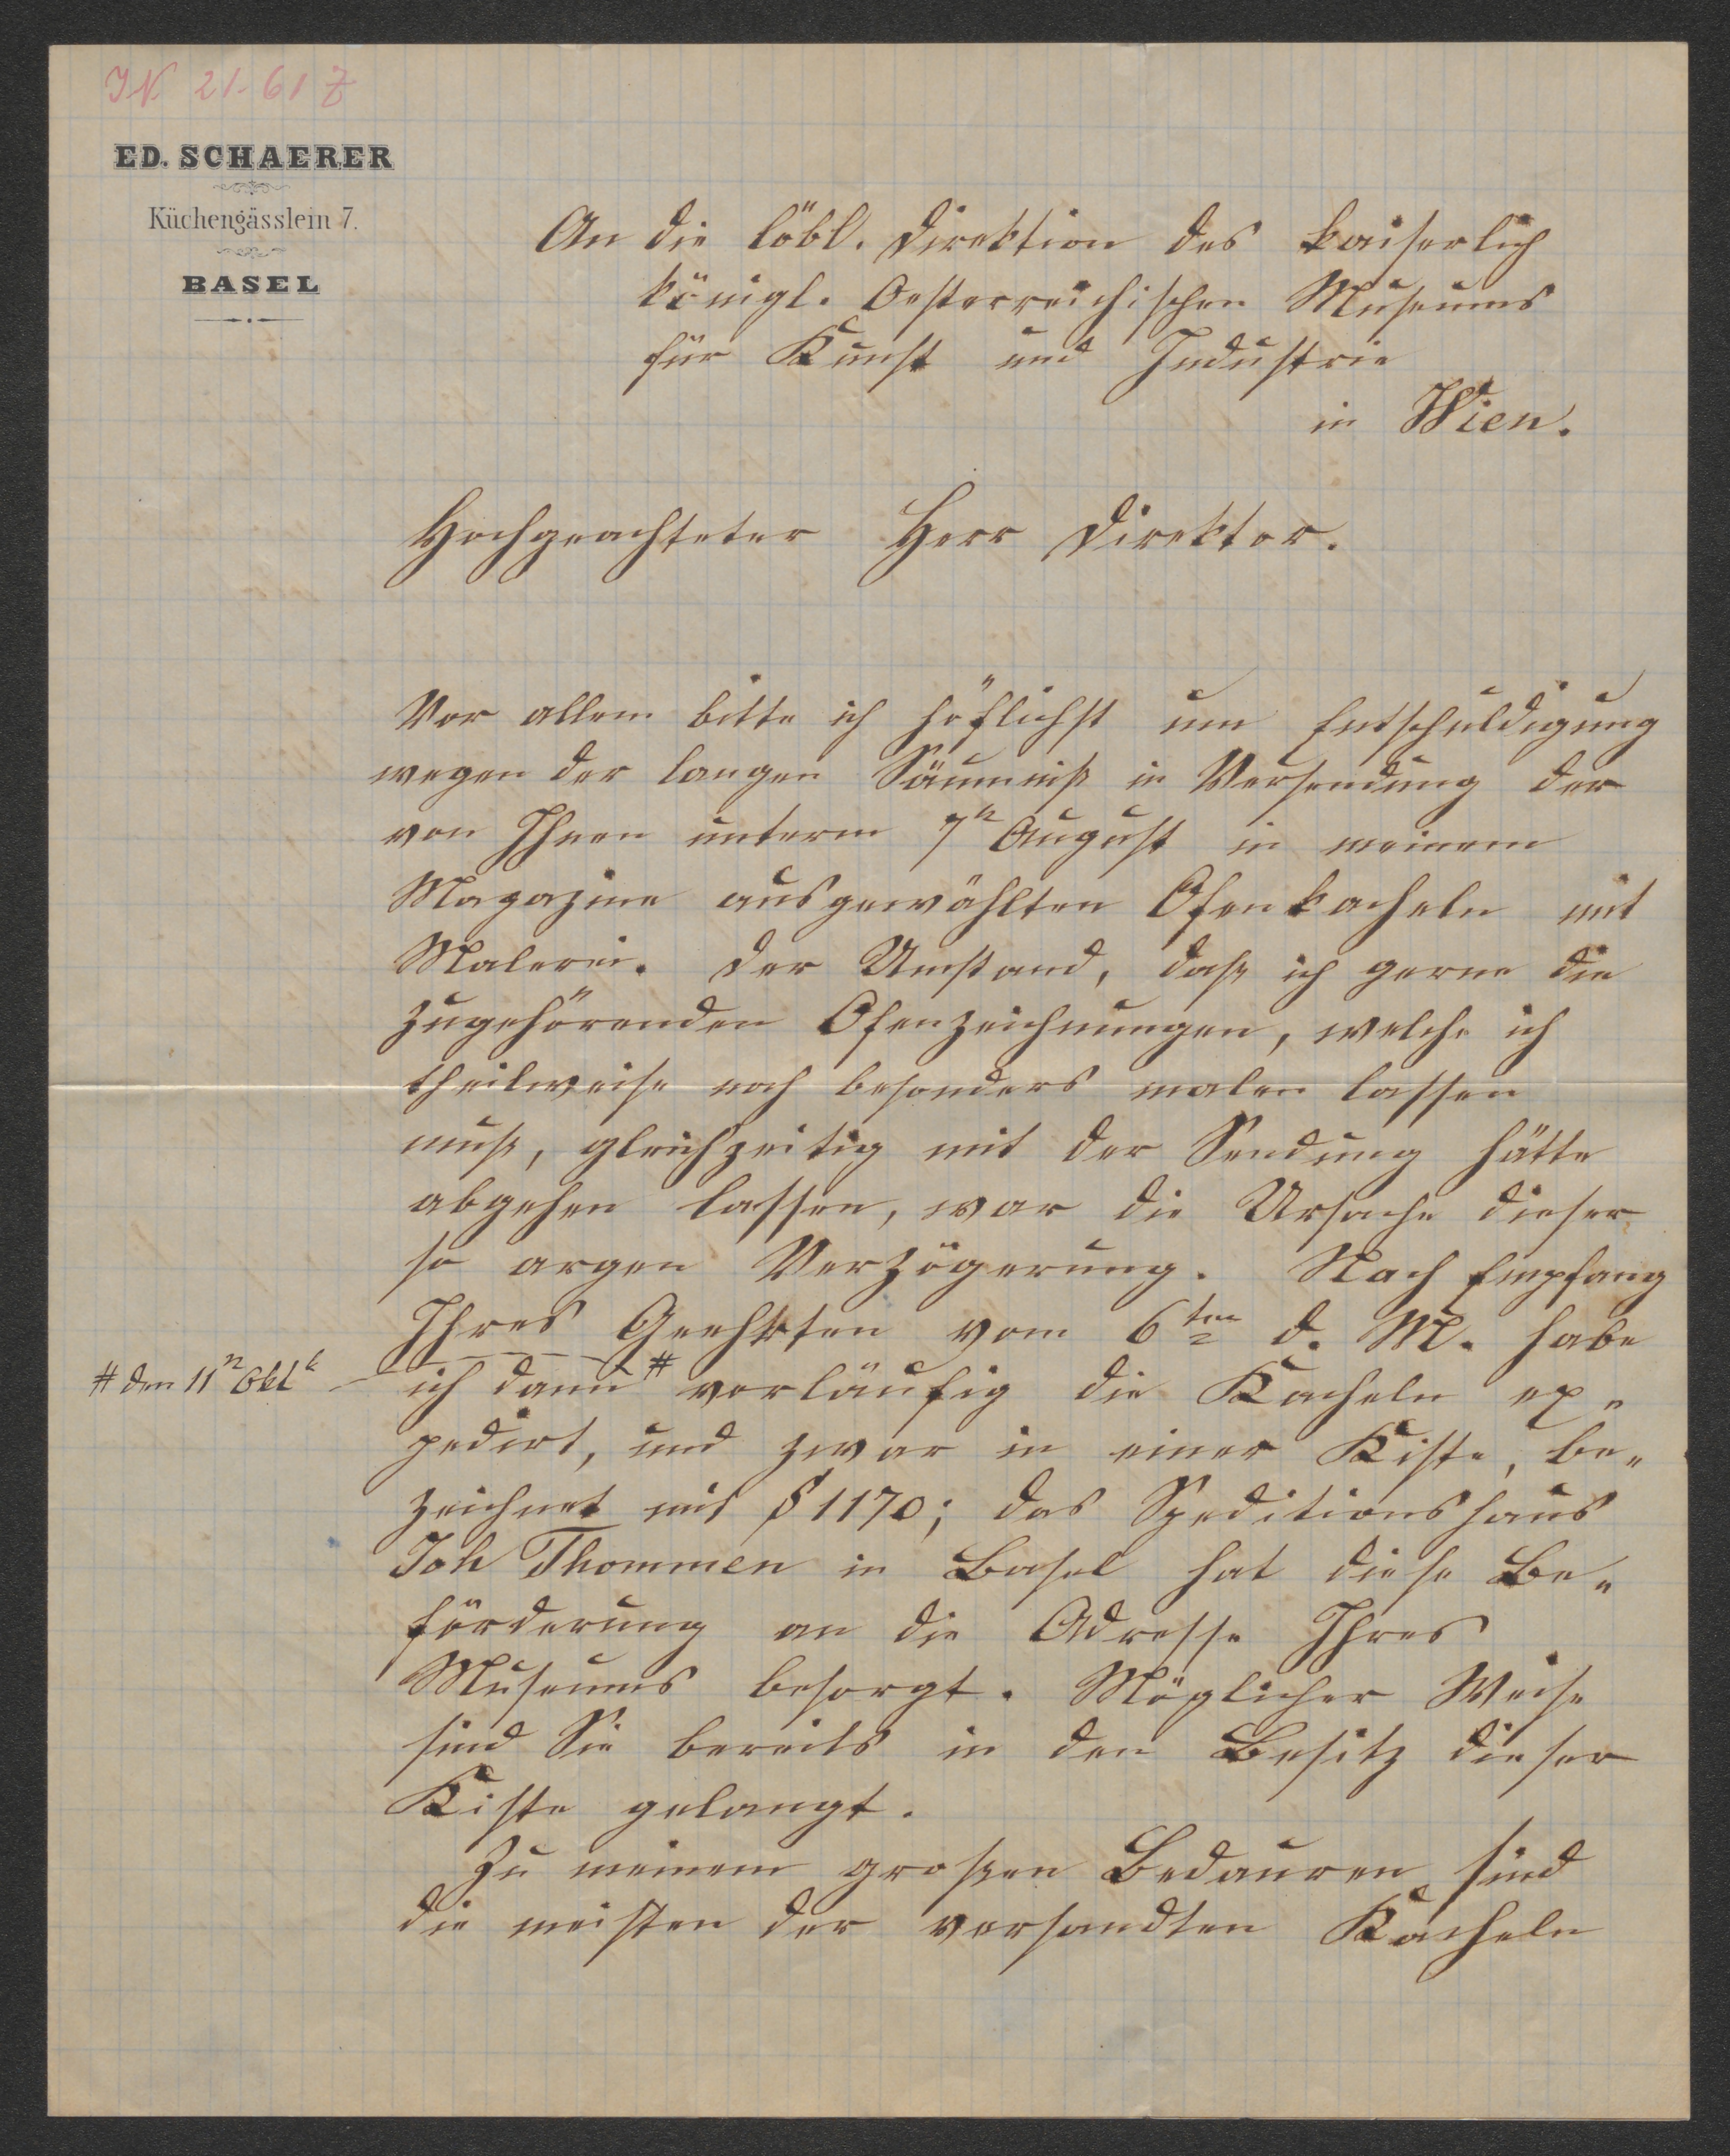 IN 21-61 Z
ED. SCHAERER
Küchengässlein 7.
BASEL
An die löbl. Direktion des kaiserlich
königl. Oesterreichischen Museums
für Kunst und Industrie
in Wien.
Hochgeachteter Herr Direktor.
Vor allem bitte ich höflichst um Entschuldigung
wegen der langen Säumniß in Versendung der
von Ihnen unterm 7n August in meinem
Magazine ausgewählten Ofenkacheln mit
Malerei. Der Umstand, daß ich gerne die
zugehörenden Ofenzeichnungen, welche ich
theilweise noch besonders malen lassen
muß, gleichzeitig mit der Sendung hätte
abgehen lassen, war die Ursache dieser
so argen Verzögerung. Nach Empfang
Ihres Geehrten vom 6ten d. M. habe
# den 11n Okt
ich dann # vorläufig die Kacheln ex„
pedirt, und zwar in einer Kiste, be„
zeichnet mit § 1170; das Speditionshaus
Joh Thommen in Basel hat diese Be„
förderung an die Adresse Ihres
Museums besorgt. Möglicher Weise
sind Sie bereits in den Besitz dieser
Kiste gelangt.
Zu meinem großen Bedauren sind
die meisten der versandten Kacheln